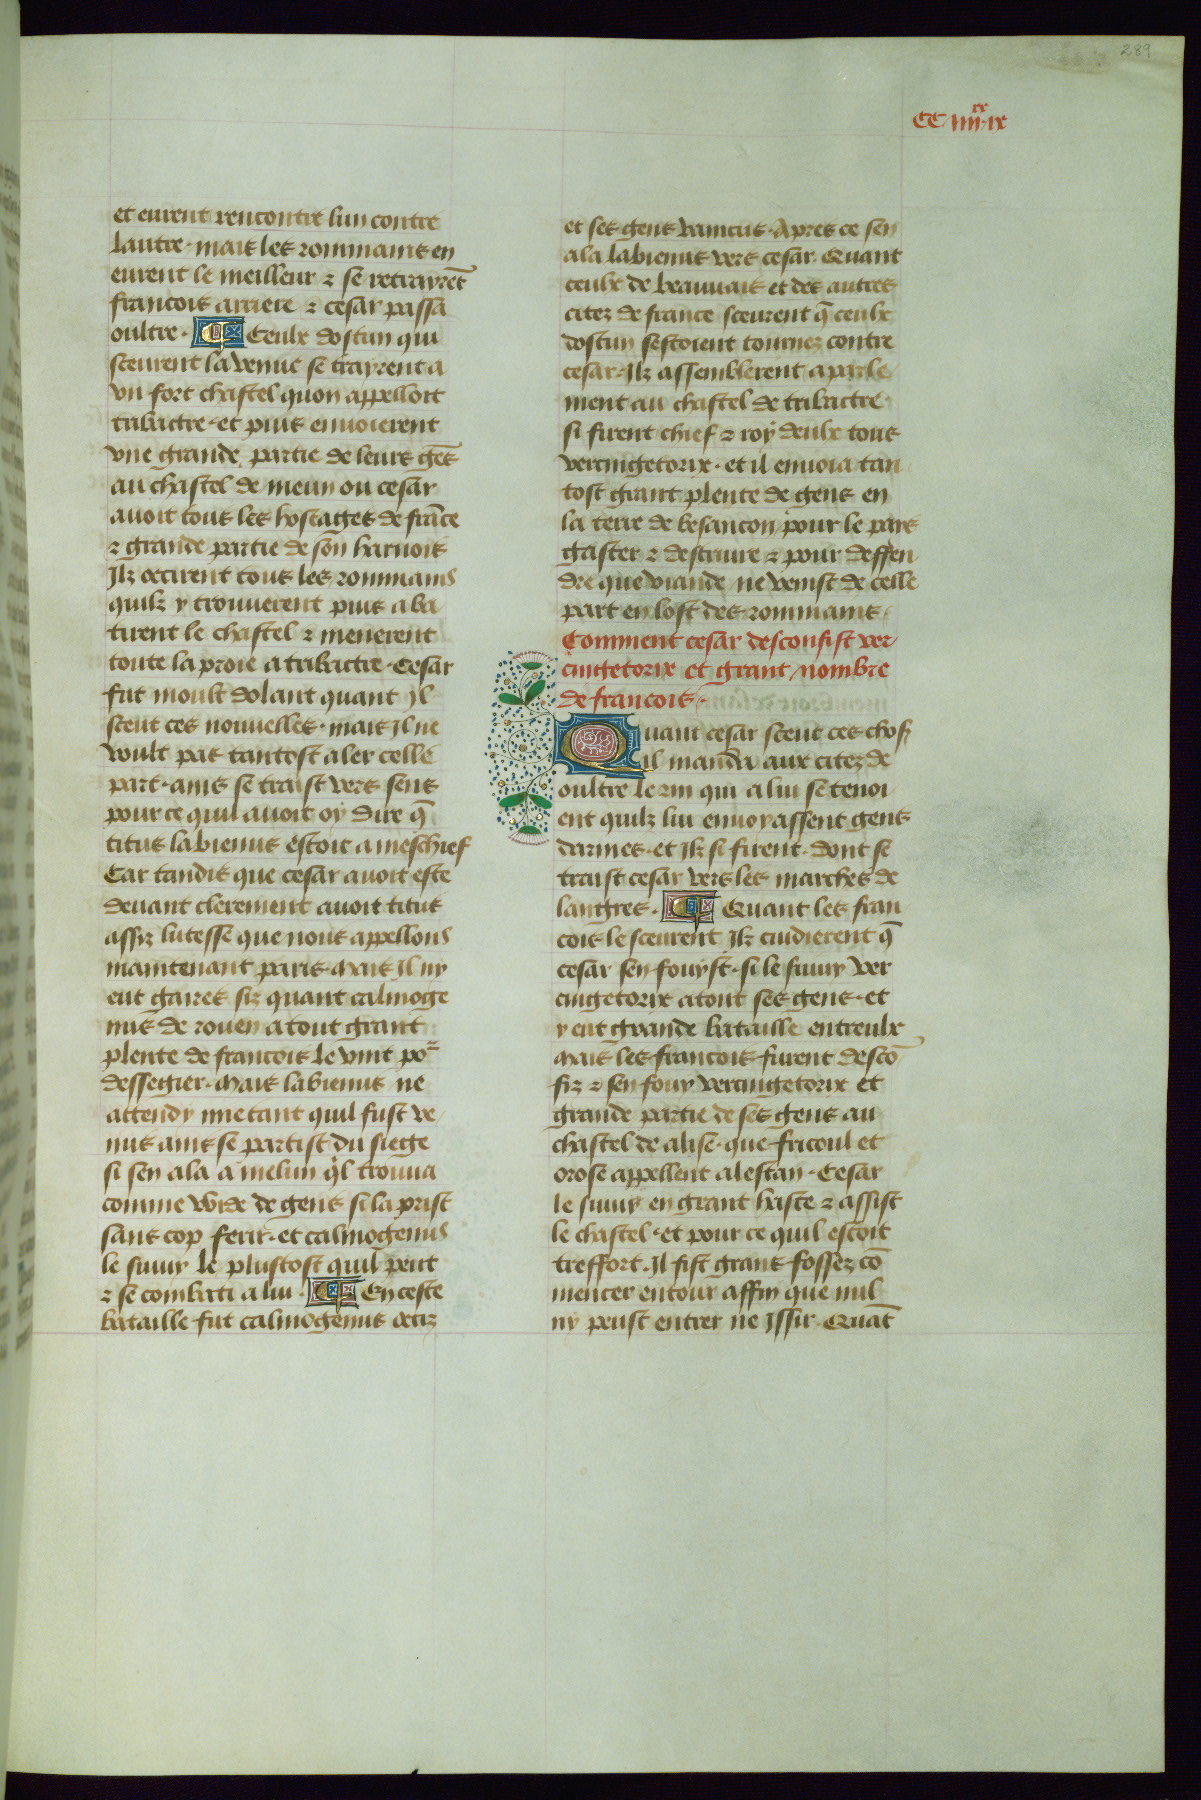 289
CC iiii xx ix
et eurent rencontre lun contre
lautre · mais les rommains en
eurent le meilleur ⁊ se retrayrēt
francois arriere ⁊ cesar passa
oultre · Ceulx dostun qui
sceurent la venue se trayrent a
vn fort chastel quon appelloit
tribactre · et puis enuoierent
vne grande partie de leurs gēs
au chastel de meun ou cesar
auoit tous les hostages de frāce
⁊ grande partie de son harnois
Ilz occirent tous les rommains
quilz y trouuerent puis aba
tirent le chastel ⁊ menerent
toute la proie a tribactre · Cesar
fut moult dolant quant Il
sceut ces nouuelles · mais Il ne
voult pas tantost aler celle
part · ains se traist vers sens
pour ce quil auoit oy dire q̄
titus labienus estoit a meschief
Car tandis que cesar auoit este
deuant clerement auoit titus
assiz lutesse que nous appellons
maintenant paris · Mais Il ny
eut gaires siz quant calmoge
nus de rouen a tout grant
plente de francois le vint po᷑
dessegier · Mais labienus ne
attendy mie tant quil fust ve
nus ains se partist du siege
si sen ala a melun ql trouua
comme vuide de gens si la prist
sans cop ferir · et calmogenus
le suiuy le plustost quil peut
⁊ se combati a lui · En ceste
bataille fut calmogenus occiz
et ses gens vaincus · Apres ce sen
ala labienus vers cesar Quant
ceulx de beauuais et des autres
citez de france sceurent q̄ ceulx
dostun sestoient tournez contre
cesar · Ilz assemblerent a parle
ment au chastel de tribactre ·
si firent chief ⁊ roy deulx tous
vercingetorix · et il enuoia tan
tost grant plente de gens en
la terre de besancon pour le pais
gaster ⁊ destruire ⁊ pour deffen
dre que viande ne venist de celle
part en lost des rommains ·
Comment cesar desconfist ver
cingetorix et grant nombre
de francois ·
Quant cesar sceut ces chos̄
il manda aux citez de
oultre le rin qui a lui se tenoi
ent quilz lui enuoyassent gens
darmes · et Ilz si firent · dont se
traist cesar vers les marches de
langres · Quant les fran
cois le sceurent Ilz cuidierent q̄
cesar sen fouyst · si le suiuy ver
cingetorix a tout ses gens · et
y eut grande bataille entreulx
Mais les francois furent descō
fiz ⁊ sen fouy vercingetorix et
grande partie de ses gens au
chastel de alise · que fricoul et
orose appellent alestan · Cesar
le suiuy en grant haste ⁊ assist
le chastel · et pour ce quil estoit
treffort · Il fist grans fossez cō
mencer entour affin que nul
ny peust entrer ne Issir · Quāt